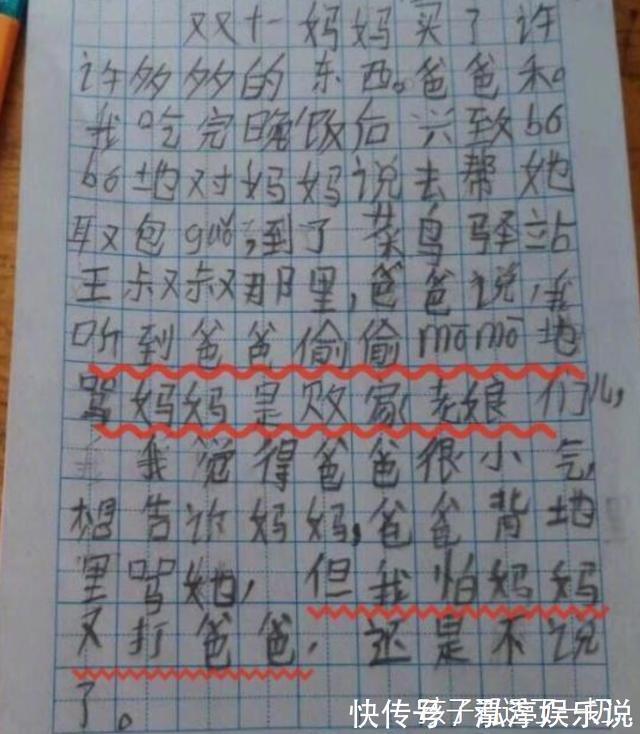 双十一妈妈买了许
许多多的东西。爸爸和
我吃完晚饭后兴致bó
bó地对妈妈说去帮她
取包guǒ,到了菜鸟驿站
王叔叔那里,爸爸说,我
听到爸爸偷偷mōmō地
骂妈妈是败家老娘们儿,
我觉得爸爸很小气,
想告诉妈妈,爸爸背地
里骂她,但我怕妈妈
又打爸爸,还是不说
了。
快传号/孤淳娱乐说